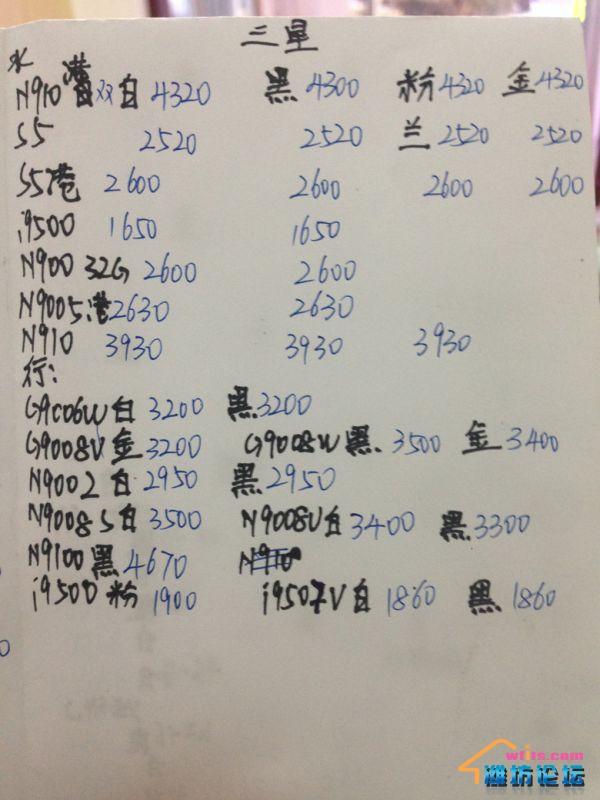 三星
水
N910 港双白 4320 黑 4300 粉 4320 金 4320
S5 2520 2520 兰 2520 2520
S5港 2600 2600 2600 2600
i9500 1650 1650
N900 32G 2600 2600
N9005港 2630 2630
N910 3930 3930 3930
行:
G9006W 白 3200 黑 3200
G9008V 金 3200 G9008W 黑 3500 金 3400
N9002 白 2950 黑 2950
N9008S 白 3500 N9008V 白 3400 黑 3300
N9100 黑 4670 N910
i9500 粉 1900 i9507V 白 1860 黑 1860
wfits.com
潍坊论坛